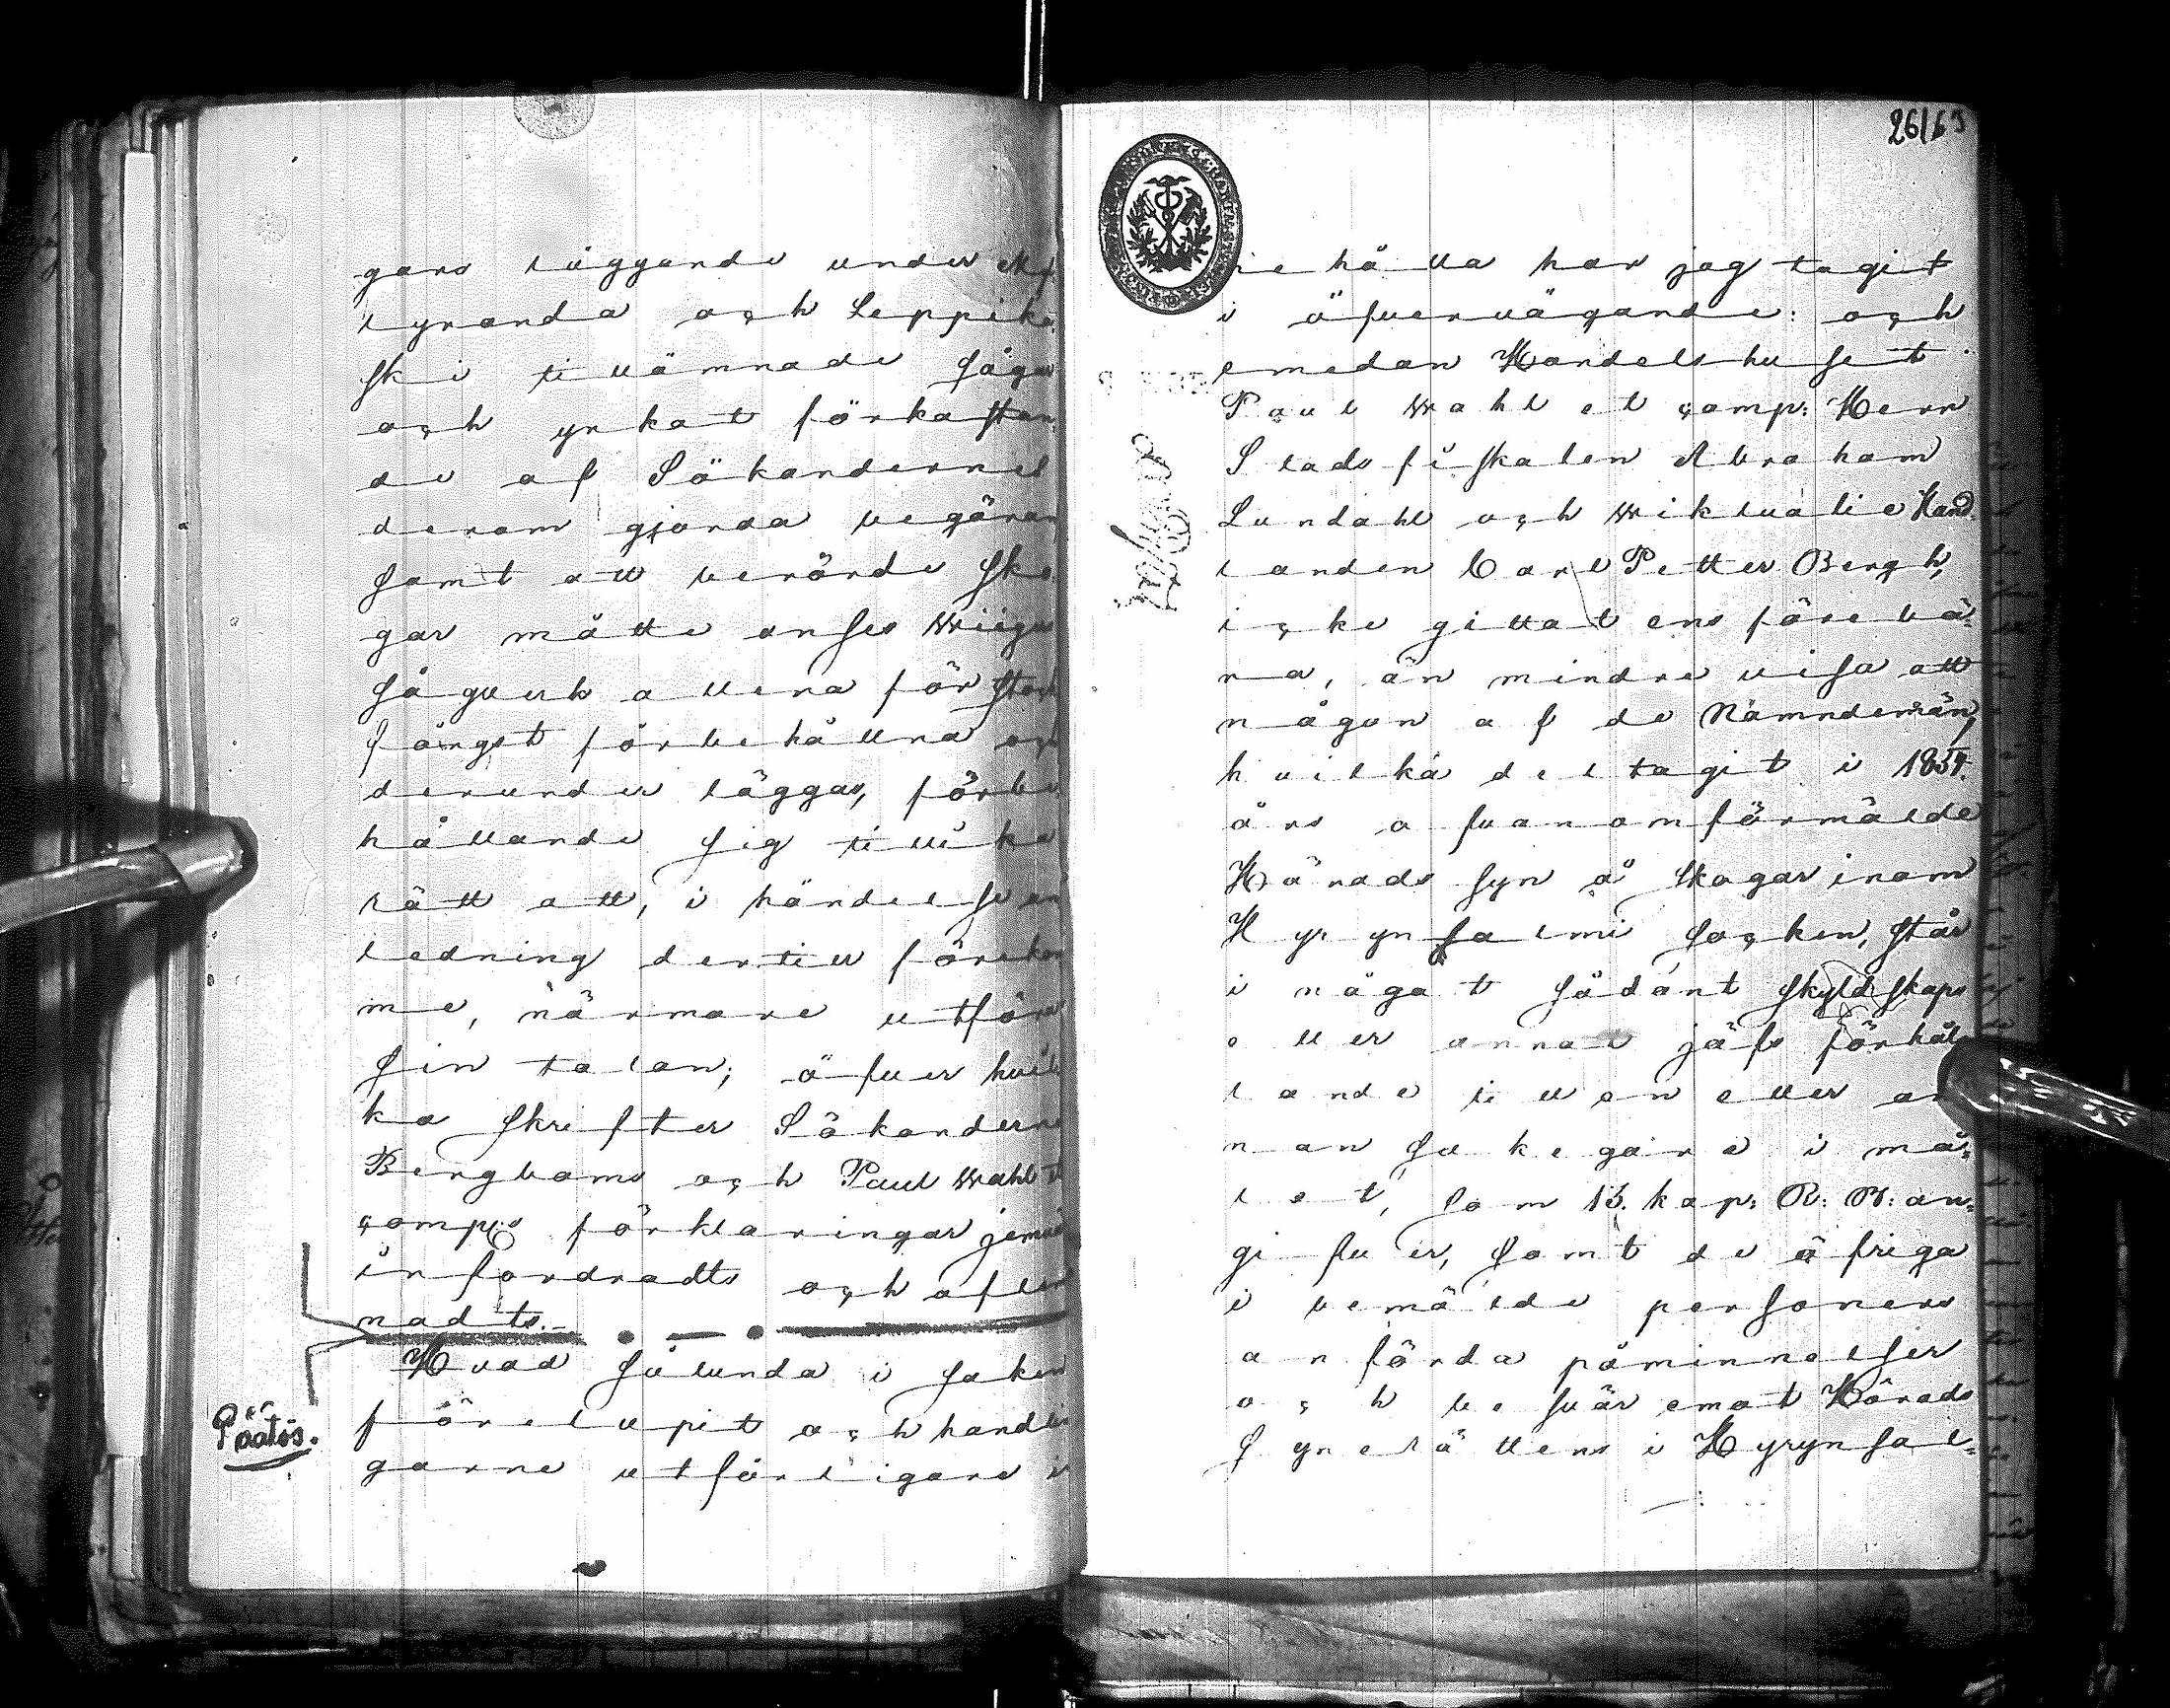 gars läggande under
lyranda och Leppiko
ski till nämnade sågar
och yrkat förkastan
de af Sökandernes
derom gjorda begäran
samt att berörde Sko
gar måtte anses Wiiga
sågverk allena för stock
fångst förbehållna och
derunder läggas, förbe
hållande sig tillika
rätt att, i händelse an
ledning dertill förekom
me, närmare utföra
sin talan; öfver hvil
ka Skrifter Sökanderne
Bergboms och Paul Wahl et
comp:s förklaringar jemväl
infordradts och aflem
nadts.–
Hvad sålunda i saken
förelupit och handlin
Päätös.
garne utförligare in
26163
ne hålla har jag tagit
i öfvervägande: och
emedan Handelshuset
Paul Wahl et comp: Herr
Stadsfiskalen Abraham
Lundahl och Wiktualie Hand
landen Carl Petter Bergh,
icke gittat ens förebä=
ra, än mindre visa att
någon af de Nämndemän,
hvilka deltagit i
års ofvanomförmälde
Härads syn å skogar inom
Hyrynsalmi socken, står
i något sådant skyldskaps
eller annat jäfs förhål
lande till en eller an
nan sakegare i må=
let, som 13. kap: R: B: an=
gifver, samt de öfriga
i bemälde personers
anförda påminnelser
och besvär emot Härads
Synerättens i Hyrynsal=